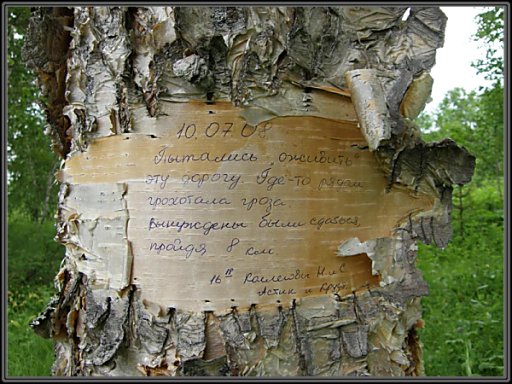 10.07.08
Пытались „оживить"
эту дорогу. Где-то рядом
грохотала гроза.
Вынуждены были сдаться,
пройдя 8 км
16 II
и